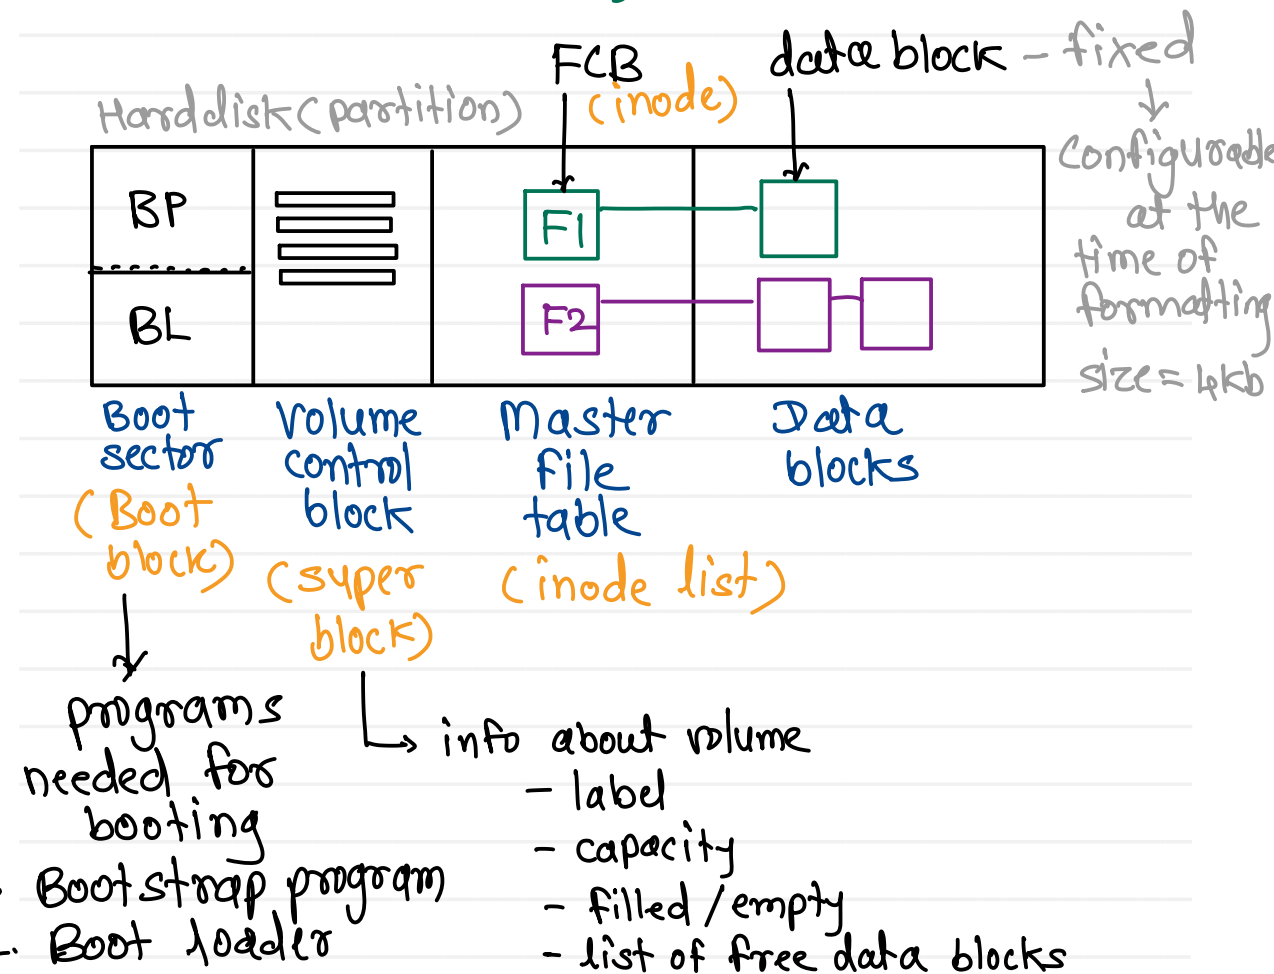 FCB
(inode)
data block - fixed
Configurable
at the
time of
formatting
size = 4kb
Harddisk (partition)
BP
BL
F1
F2
Boot
sector
(Boot
block)
Volume
control
block
(super
block)
Master
file
table
(inode list)
Data
blocks
programs
needed for
booting
- Bootstrap program
- Boot loader
info about volume
- label
- capacity
- filled / empty
- list of free data blocks